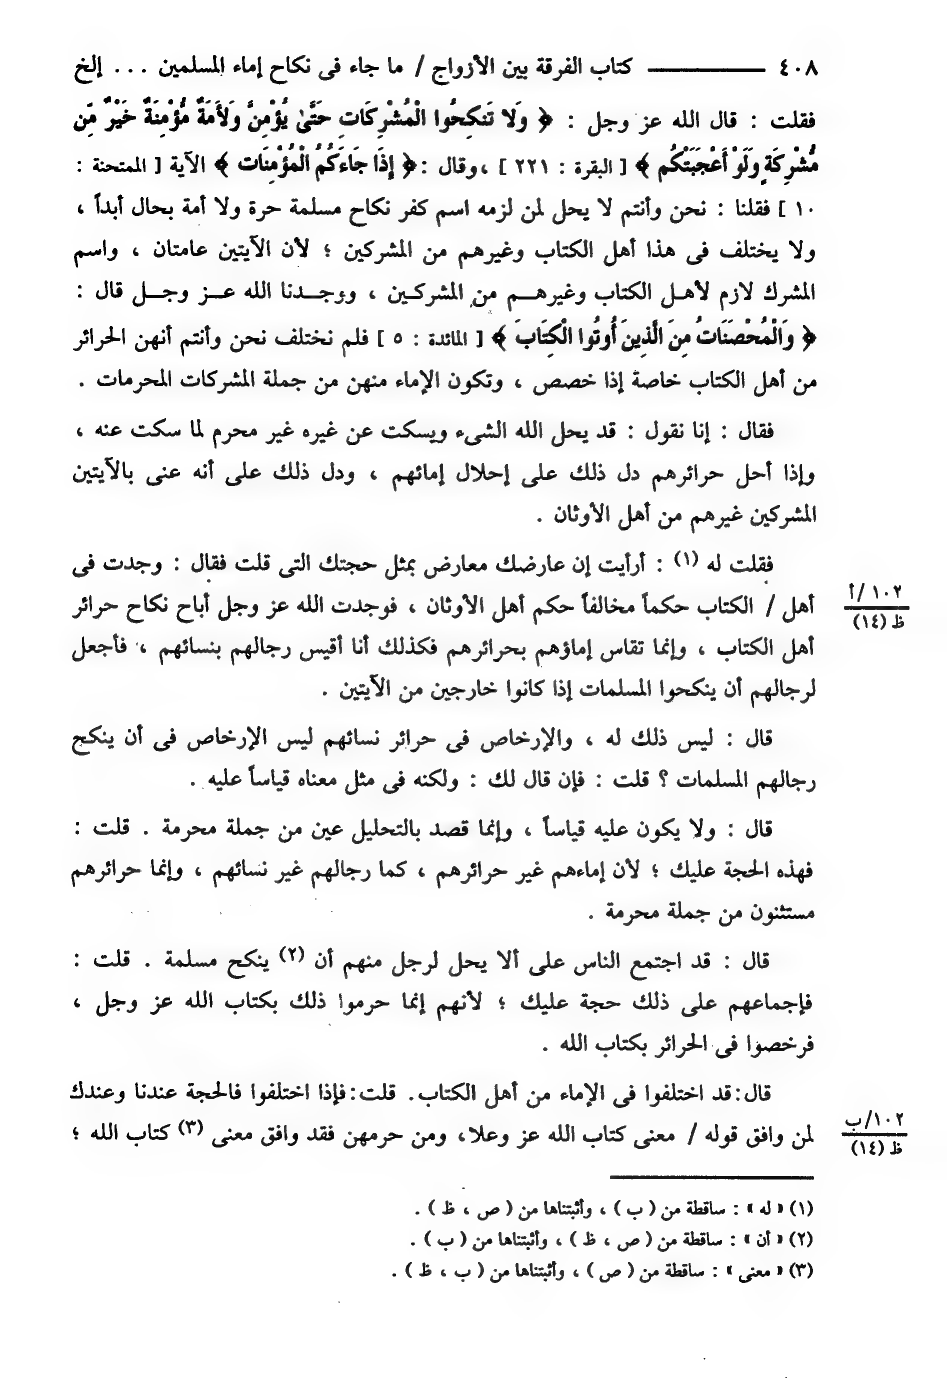 ٤٠٨ ــــــــــــ كتاب الفرقة بين الأزواج / ما جاء فى نكاح إماء المسلمين ... إلخ
فقلت : قال الله عز وجل : ﴿ وَلا تَنكِحُوا الْمُشْرِكَاتِ حَتَّىٰ يُؤْمِنَّ وَلَأَمَةٌ مُّؤْمِنَةٌ خَيْرٌ مِّن
مُّشْرِكَةٍ وَلَوْ أَعْجَبَتْكُم ﴾ [ البقرة : ٢٢١ ] ، وقال : ﴿ إِذَا جَاءَكُمُ الْمُؤْمِنَات ﴾ الآية [ الممتحنة :
١٠ ] فقلنا : نحن وأنتم لا يحل لمن لزمه اسم كفر نكاح مسلمة حرة ولا أمة بحال أبداً ،
ولا يختلف فى هذا أهل الكتاب وغيرهم من المشركين ؛ لأن الآيتين عامتان ، واسم
المشرك لازم لأهل الكتاب وغيرهم من المشركين ، ووجدنا الله عز وجل قال :
﴿ وَالْمُحْصَنَاتُ مِنَ الَّذِينَ أُوتُوا الْكِتَابَ ﴾ [ المائدة : ٥ ] فلم نختلف نحن وأنتم أنهن الحرائر
من أهل الكتاب خاصة إذا خصص ، وتكون الإماء منهن من جملة المشركات المحرمات .
فقال : إنا نقول : قد يحل الله الشىء ويسكت عن غيره غير محرم لما سكت عنه ،
وإذا أحل حرائرهم دل ذلك على إحلال إمائهم ، ودل ذلك على أنه عنى بالآيتين
المشركين غيرهم من أهل الأوثان .
فقلت له (١) : أرأيت إن عارضك معارض بمثل حجتك التى قلت فقال : وجدت فى
أهل / الكتاب حكماً مخالفاً حكم أهل الأوثان ، فوجدت الله عز وجل أباح نكاح حرائر
١٠٢/أ
ظ (١٤)
أهل الكتاب ، وإنما تقاس إماؤهم بحرائرهم فكذلك أنا أقيس رجالهم بنسائهم ، فأجعل
لرجالهم أن ينكحوا المسلمات إذا كانوا خارجين من الآيتين .
قال : ليس ذلك له ، والإرخاص فى حرائر نسائهم ليس الإرخاص فى أن ينكح
رجالهم المسلمات ؟ قلت : فإن قال لك : ولكنه فى مثل معناه قياساً عليه .
قال : ولا يكون عليه قياساً ، وإنما قصد بالتحليل عين من جملة محرمة . قلت :
فهذه الحجة عليك ؛ لأن إماءهم غير حرائرهم ، كما رجالهم غير نسائهم ، وإنما حرائرهم
مستثنون من جملة محرمة .
قال : قد اجتمع الناس على ألا يحل لرجل منهم أن (٢) ينكح مسلمة . قلت :
فإجماعهم على ذلك حجة عليك ؛ لأنهم إنما حرموا ذلك بكتاب الله عز وجل ،
فرخصوا فى الحرائر بكتاب الله .
قال : قد اختلفوا فى الإماء من أهل الكتاب . قلت : فإذا اختلفوا فالحجة عندنا وعندك
لمن وافق قوله / معنى كتاب الله عز وعلا ، ومن حرمهن فقد وافق معنى (٣) كتاب الله ؛
١٠٢/ب
ظ (١٤)
(١) « له » : ساقطة من ( ب ) ، وأثبتناها من ( ص ، ظ ) .
(٢) « أن » : ساقطة من ( ص ، ظ ) ، وأثبتناها من ( ب ) .
(٣) « معنى » : ساقطة من ( ص ) ، وأثبتناها من ( ب ، ظ ) .